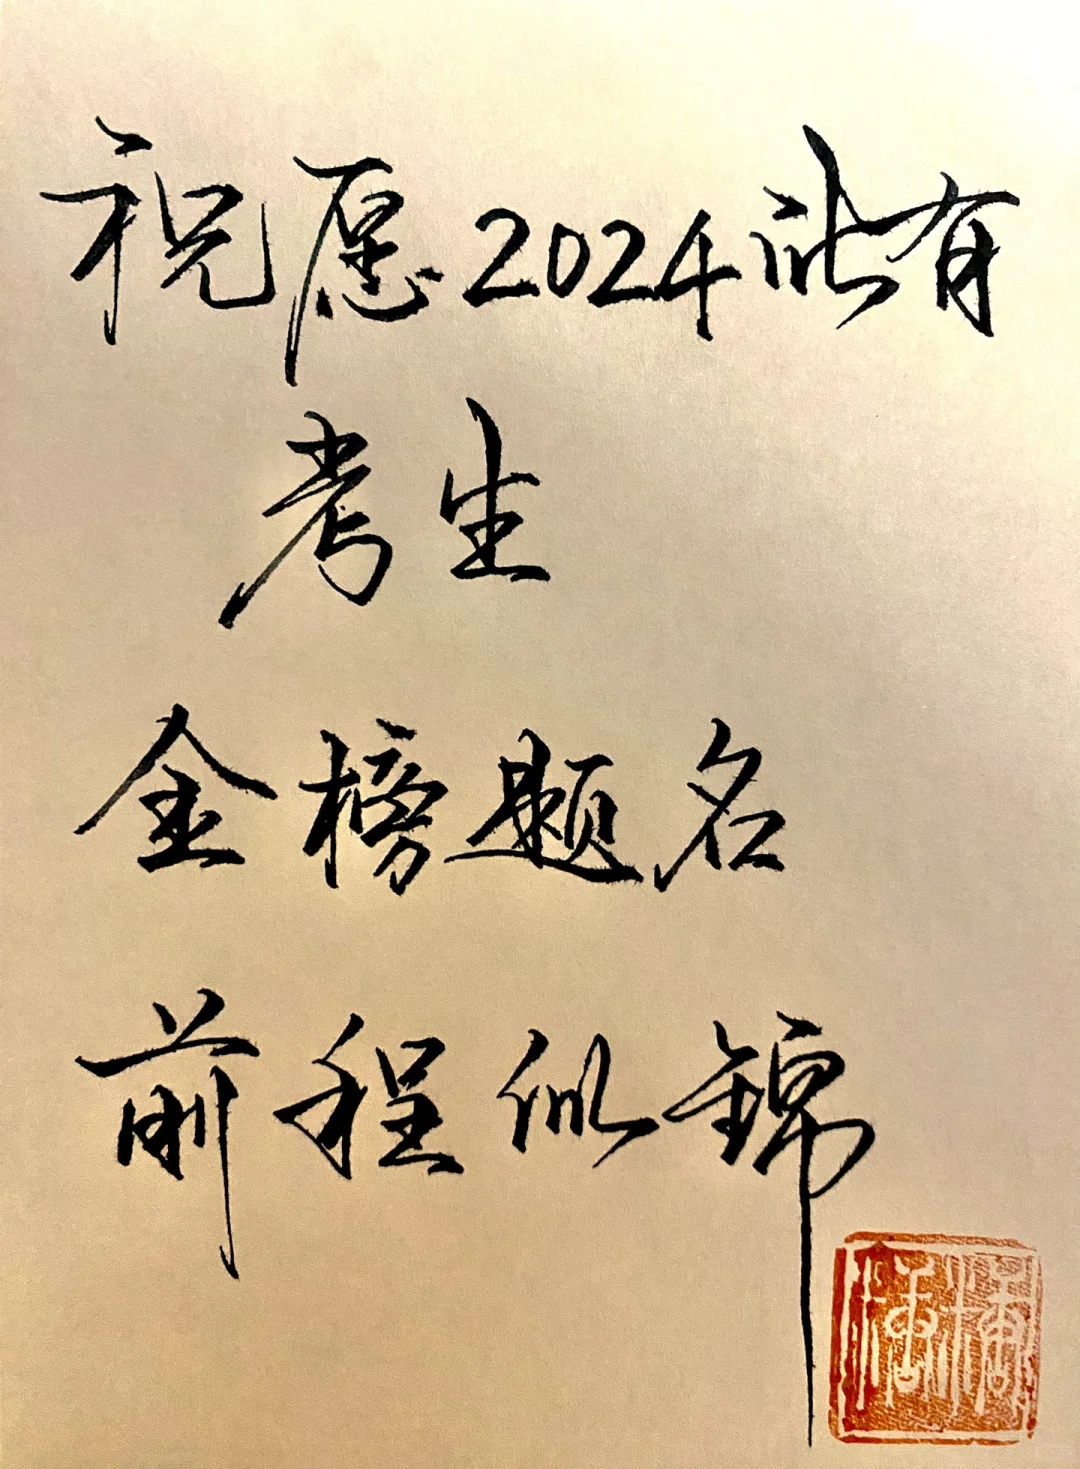 祝愿2024所有
考生
金榜题名
前程似锦